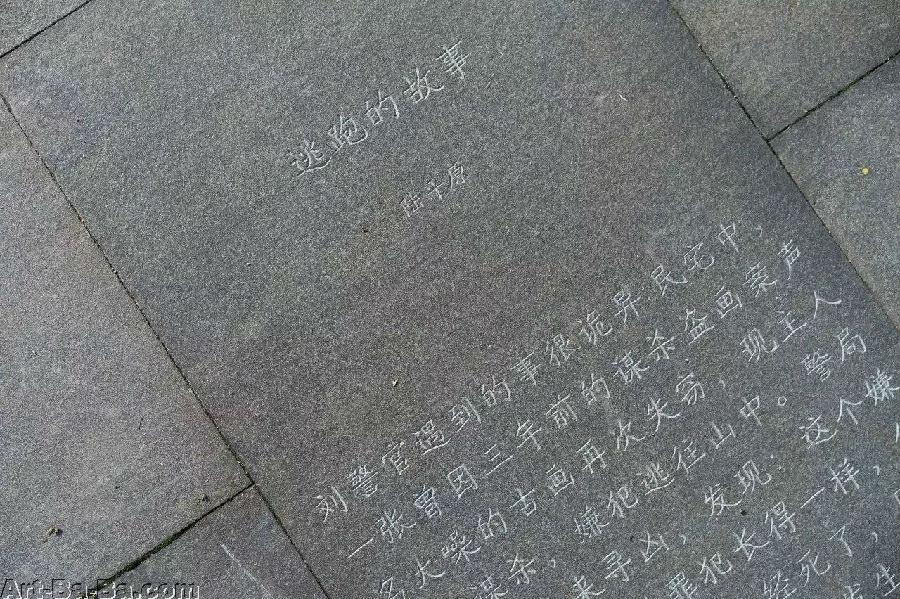 逃跑的故事
陆平原
刘警官遇到的事很诡异:民宅中,
一张曾因三年前的谋杀盗画案声
名大噪的古画再次失窃,现主人
谋杀,嫌犯逃往山中。警局
来寻凶,发现:这个嫌
罪犯长得一样,
经死了,
发生
Art-Ba-Ba.com